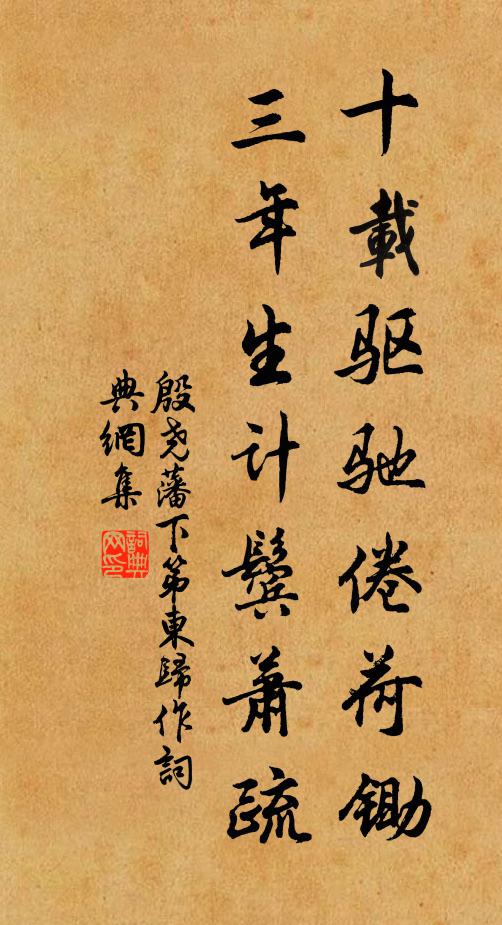 十載驱驰倦荷锄
三年生计鬓萧疏
殷尧藩下第東歸作詞
典網集
詞典网印